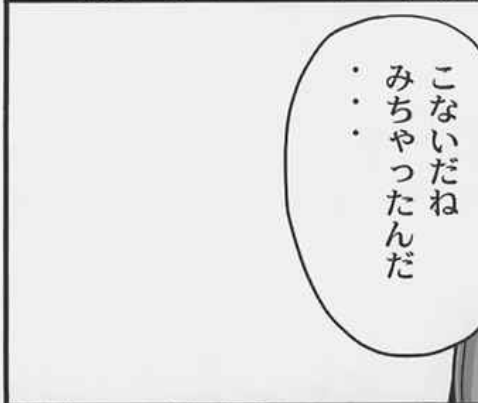 こないだね
みちゃったんだ
・・・